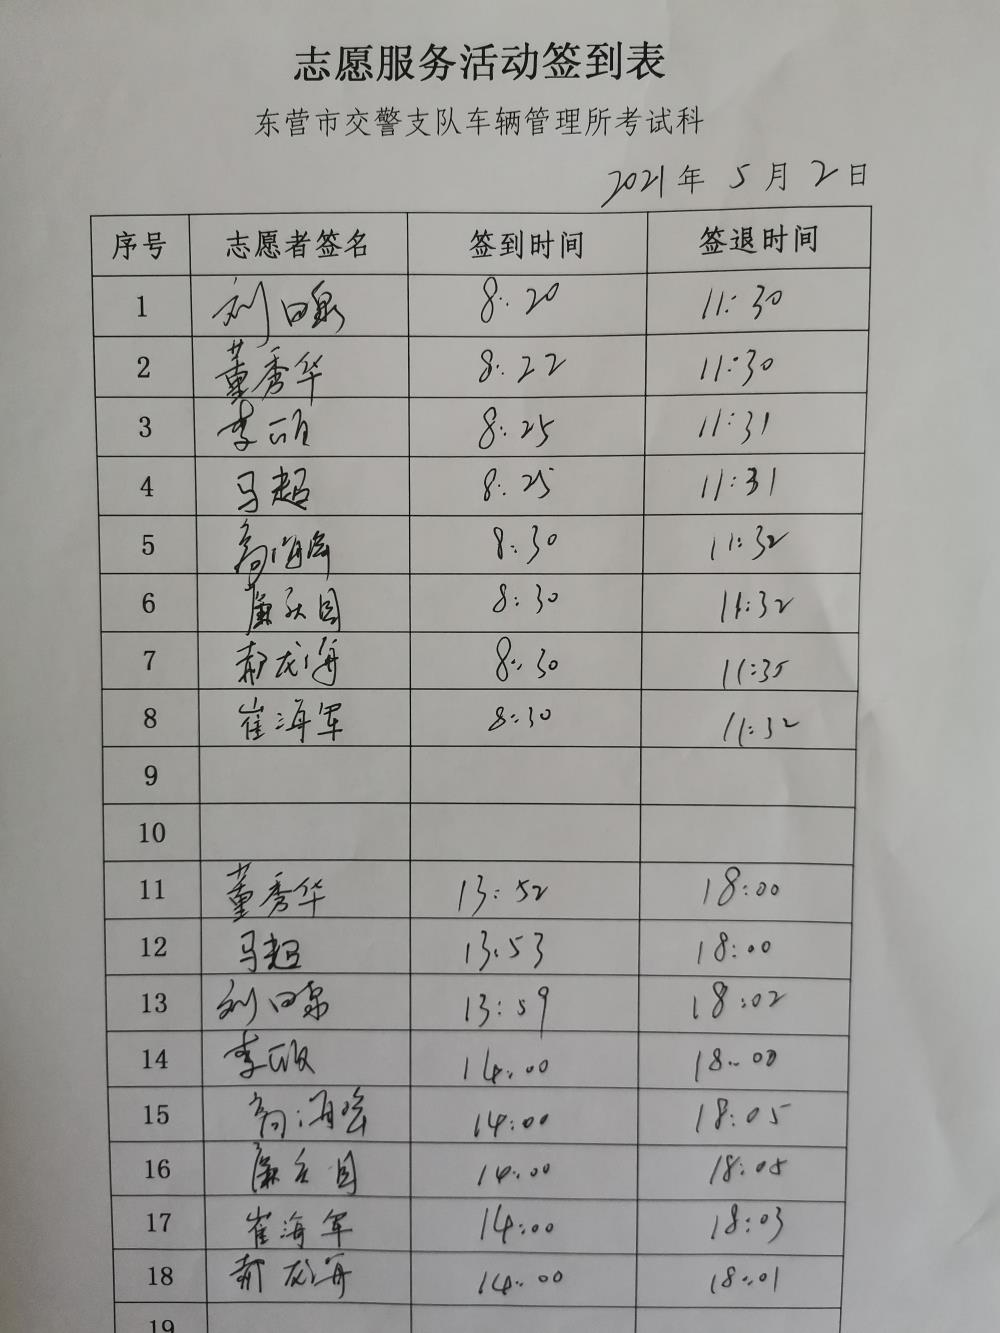 志愿服务活动签到表
东营市交警支队车辆管理所考试科
2021年 5 月 2 日
序号 志愿者签名 签到时间 签退时间
1 刘 8:20 11:30
2 董秀华 8:22 11:30
3 李 8:25 11:31
4 马超 8:25 11:31
5 高海 8:30 11:32
6 8:30 11:32
7 郝龙海 8:30 11:35
8 崔海军 8:30 11:32
9
10
11 董秀华 13:52 18:00
12 马超 13:53 18:00
13 刘 13:59 18:02
14 李 14:00 18:00
15 高海 14:00 18:05
16 14:00 18:05
17 崔海军 14:00 18:03
18 郝龙海 14:00 18:01
19